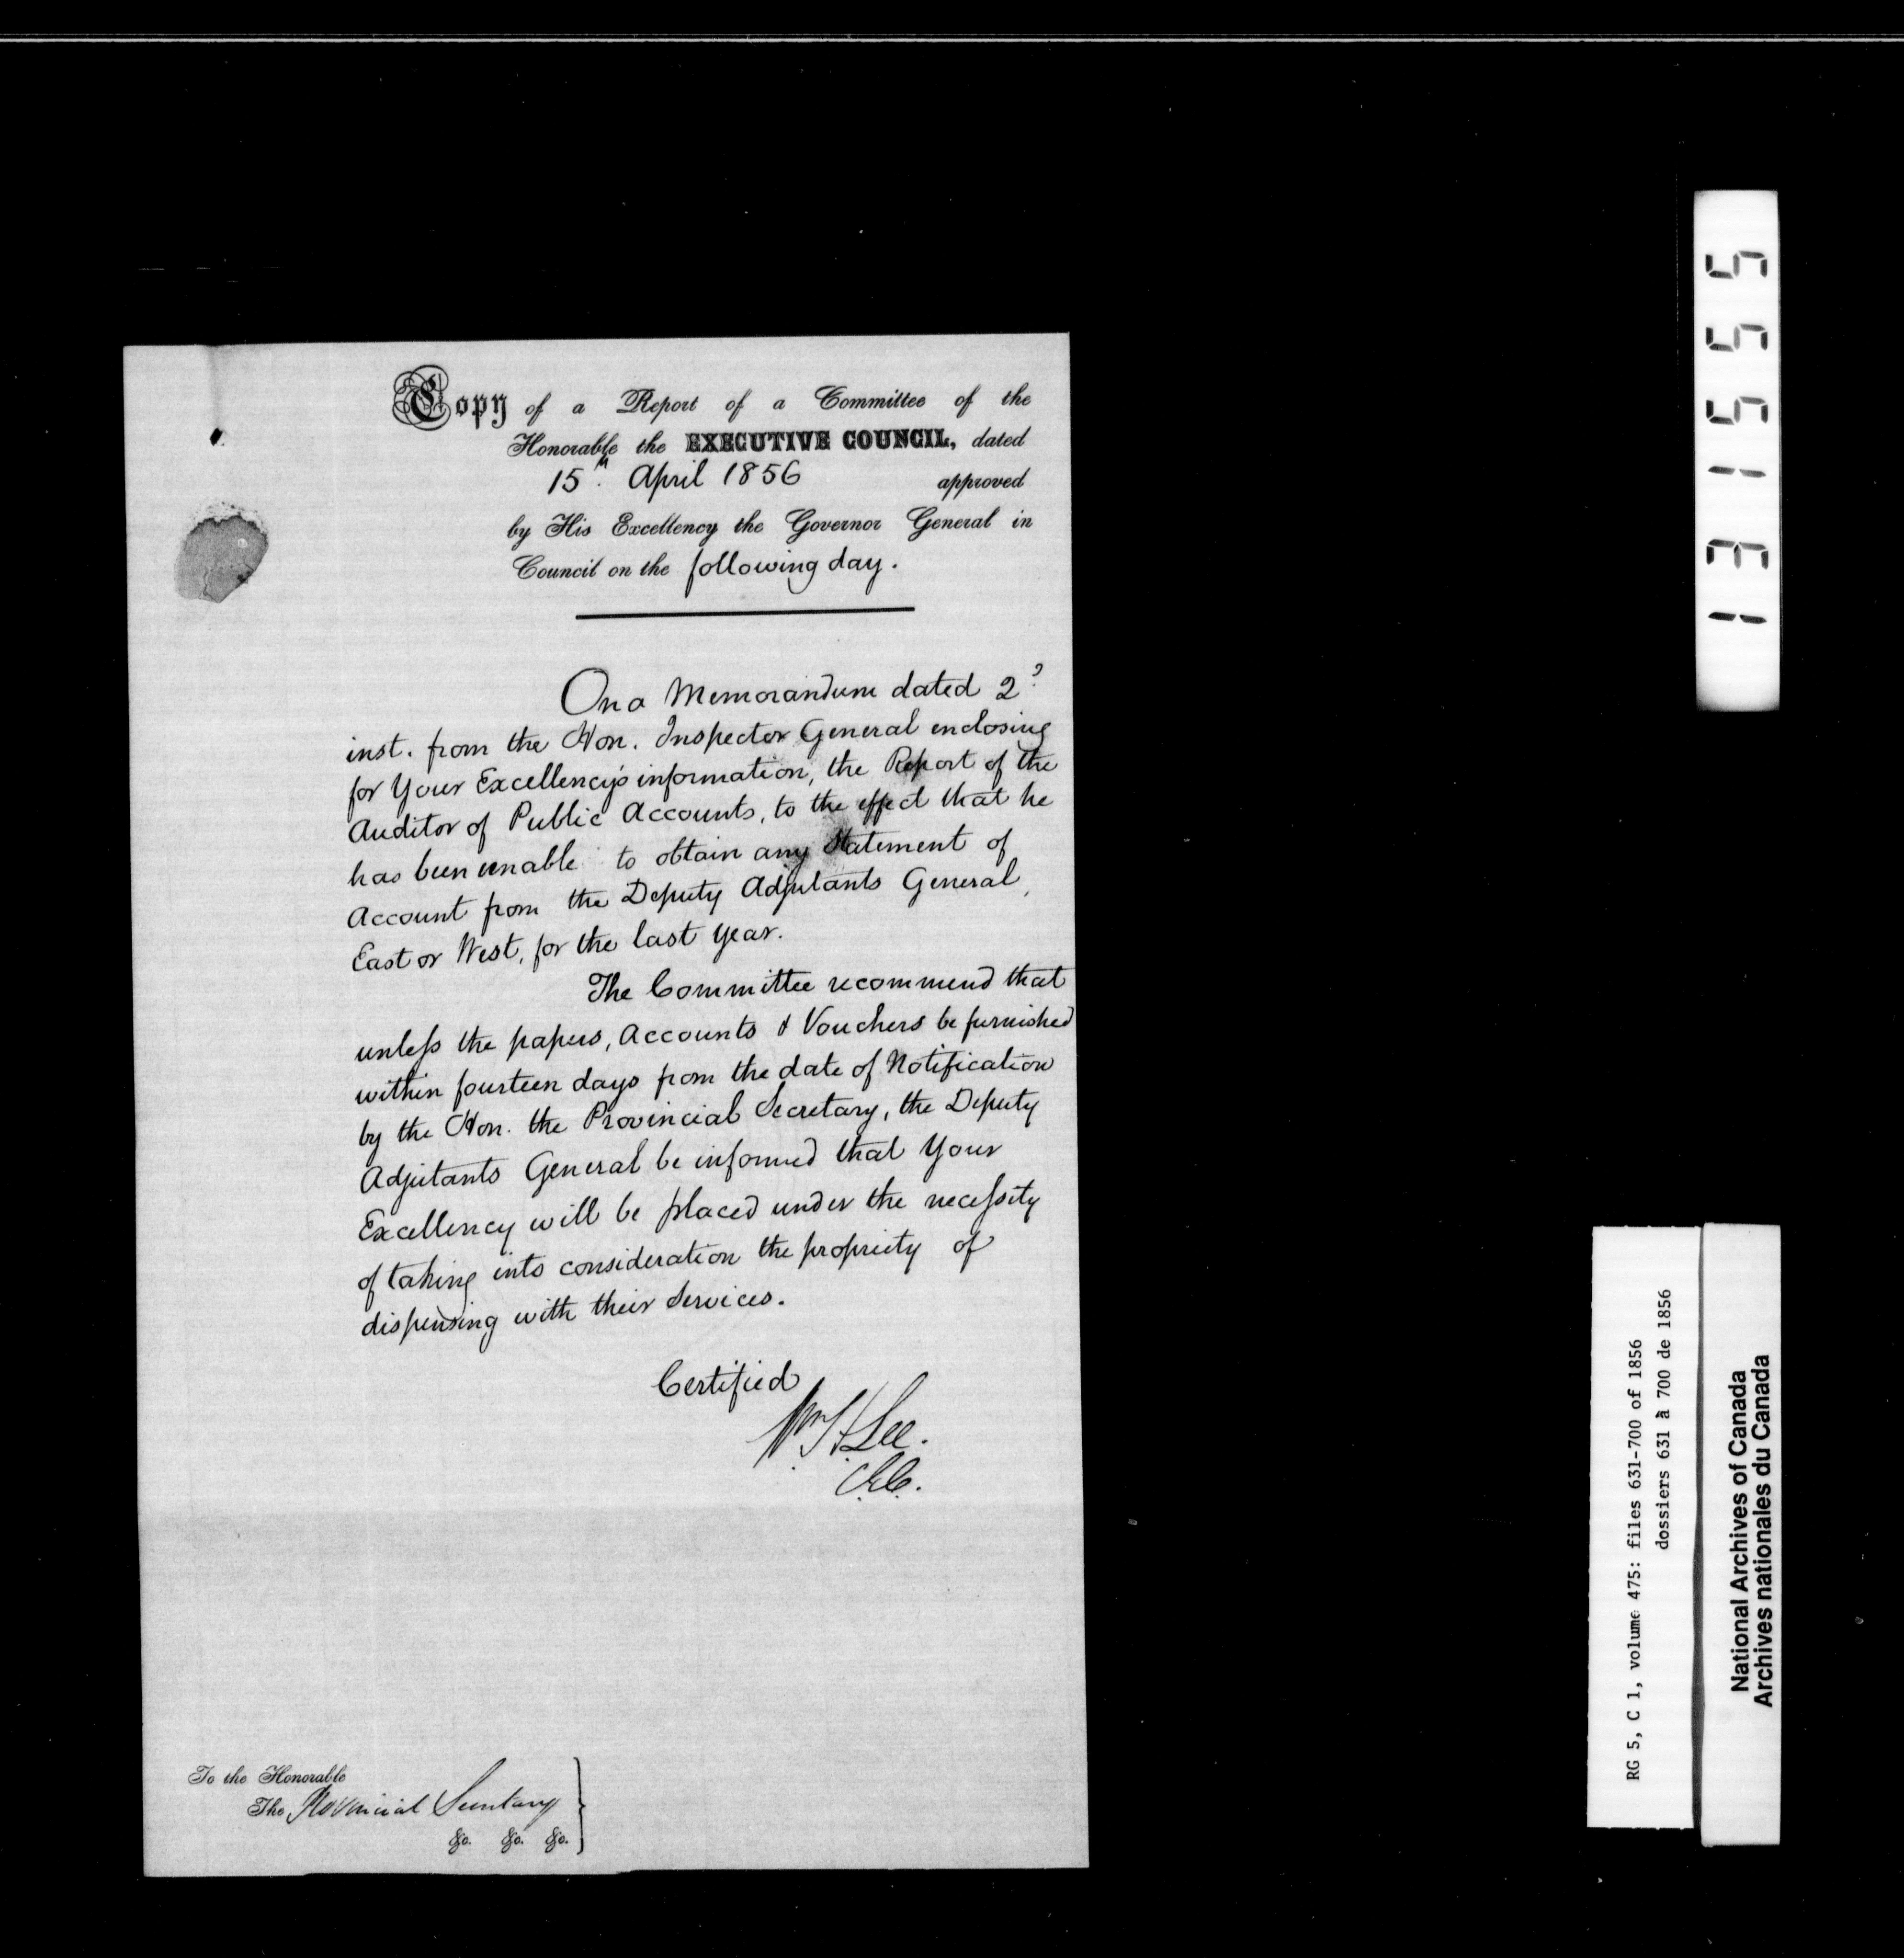 Copy of a Report of a Committee of the
Honorable the EXECUTIVE COUNCIL, dated
15th. April 1856 approved
by His Excellency the Governor General in
Council on the following day.
On a Memorandum dated 2d.
inst. from the Hon. Inspector General enclosing
for Your Excellency's information, the Report of the
Auditor of Public Accounts, to the effect that he
has been unable to obtain any Statement of
Account from the Deputy Adjutants General,
East or West, for the last year.
The Committee recommend that
unless the papers, Accounts & Vouchers be furnished
within fourteen days from the date of Notification
by the Hon. the Provincial Secretary, the Deputy
Adjutants General be informed that Your
Excellency will be placed under the necessity
of taking into consideration the propriety of
dispensing with their Services.
Certified
Wm. H. Lee.
C.E.C.
To the Honorable
The Provincial Secretary
&c. &c. &c.
131555
RG 5, C 1, volume 475: files 631-700 of 1856
dossiers 631 à 700 de 1856
National Archives of Canada
Archives nationales du Canada